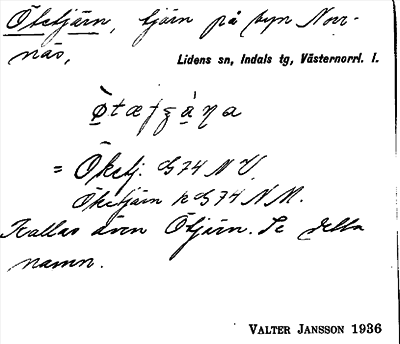 Öketjärn, tjärn på byn Norr-
näs,
Lidens sn, Indals tg, Västernorrl. l.
= Öketj. G74 NV
Öketjärn k G74 NM.
Kallas även Ötjärn. Se detta
namn.
VALTER JANSSON 1936